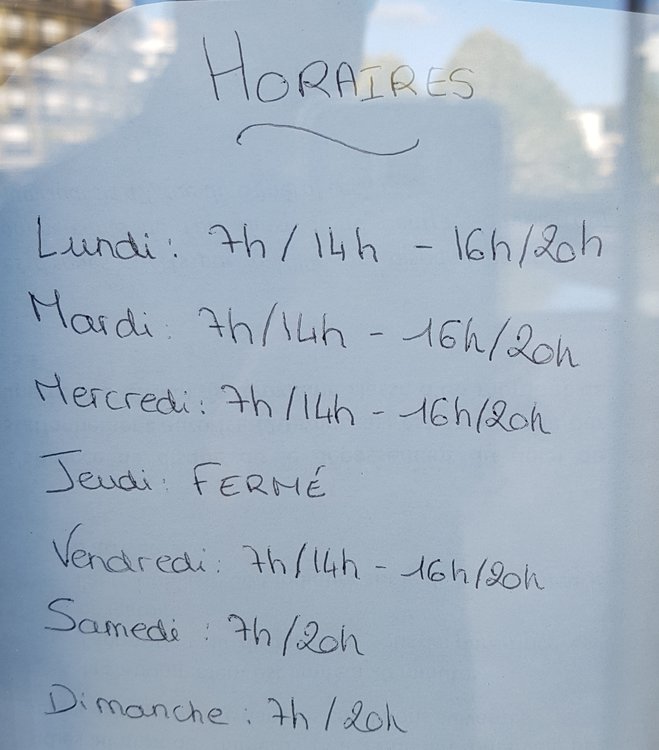 HORAIRES
Lundi : 7h / 14h - 16h/20h
Mardi : 7h/14h - 16h/20h
Mercredi : 7h/14h - 16h/20h
Jeudi : FERMÉ
Vendredi : 7h/14h - 16h/20h
Samedi : 7h/20h
Dimanche : 7h / 20h